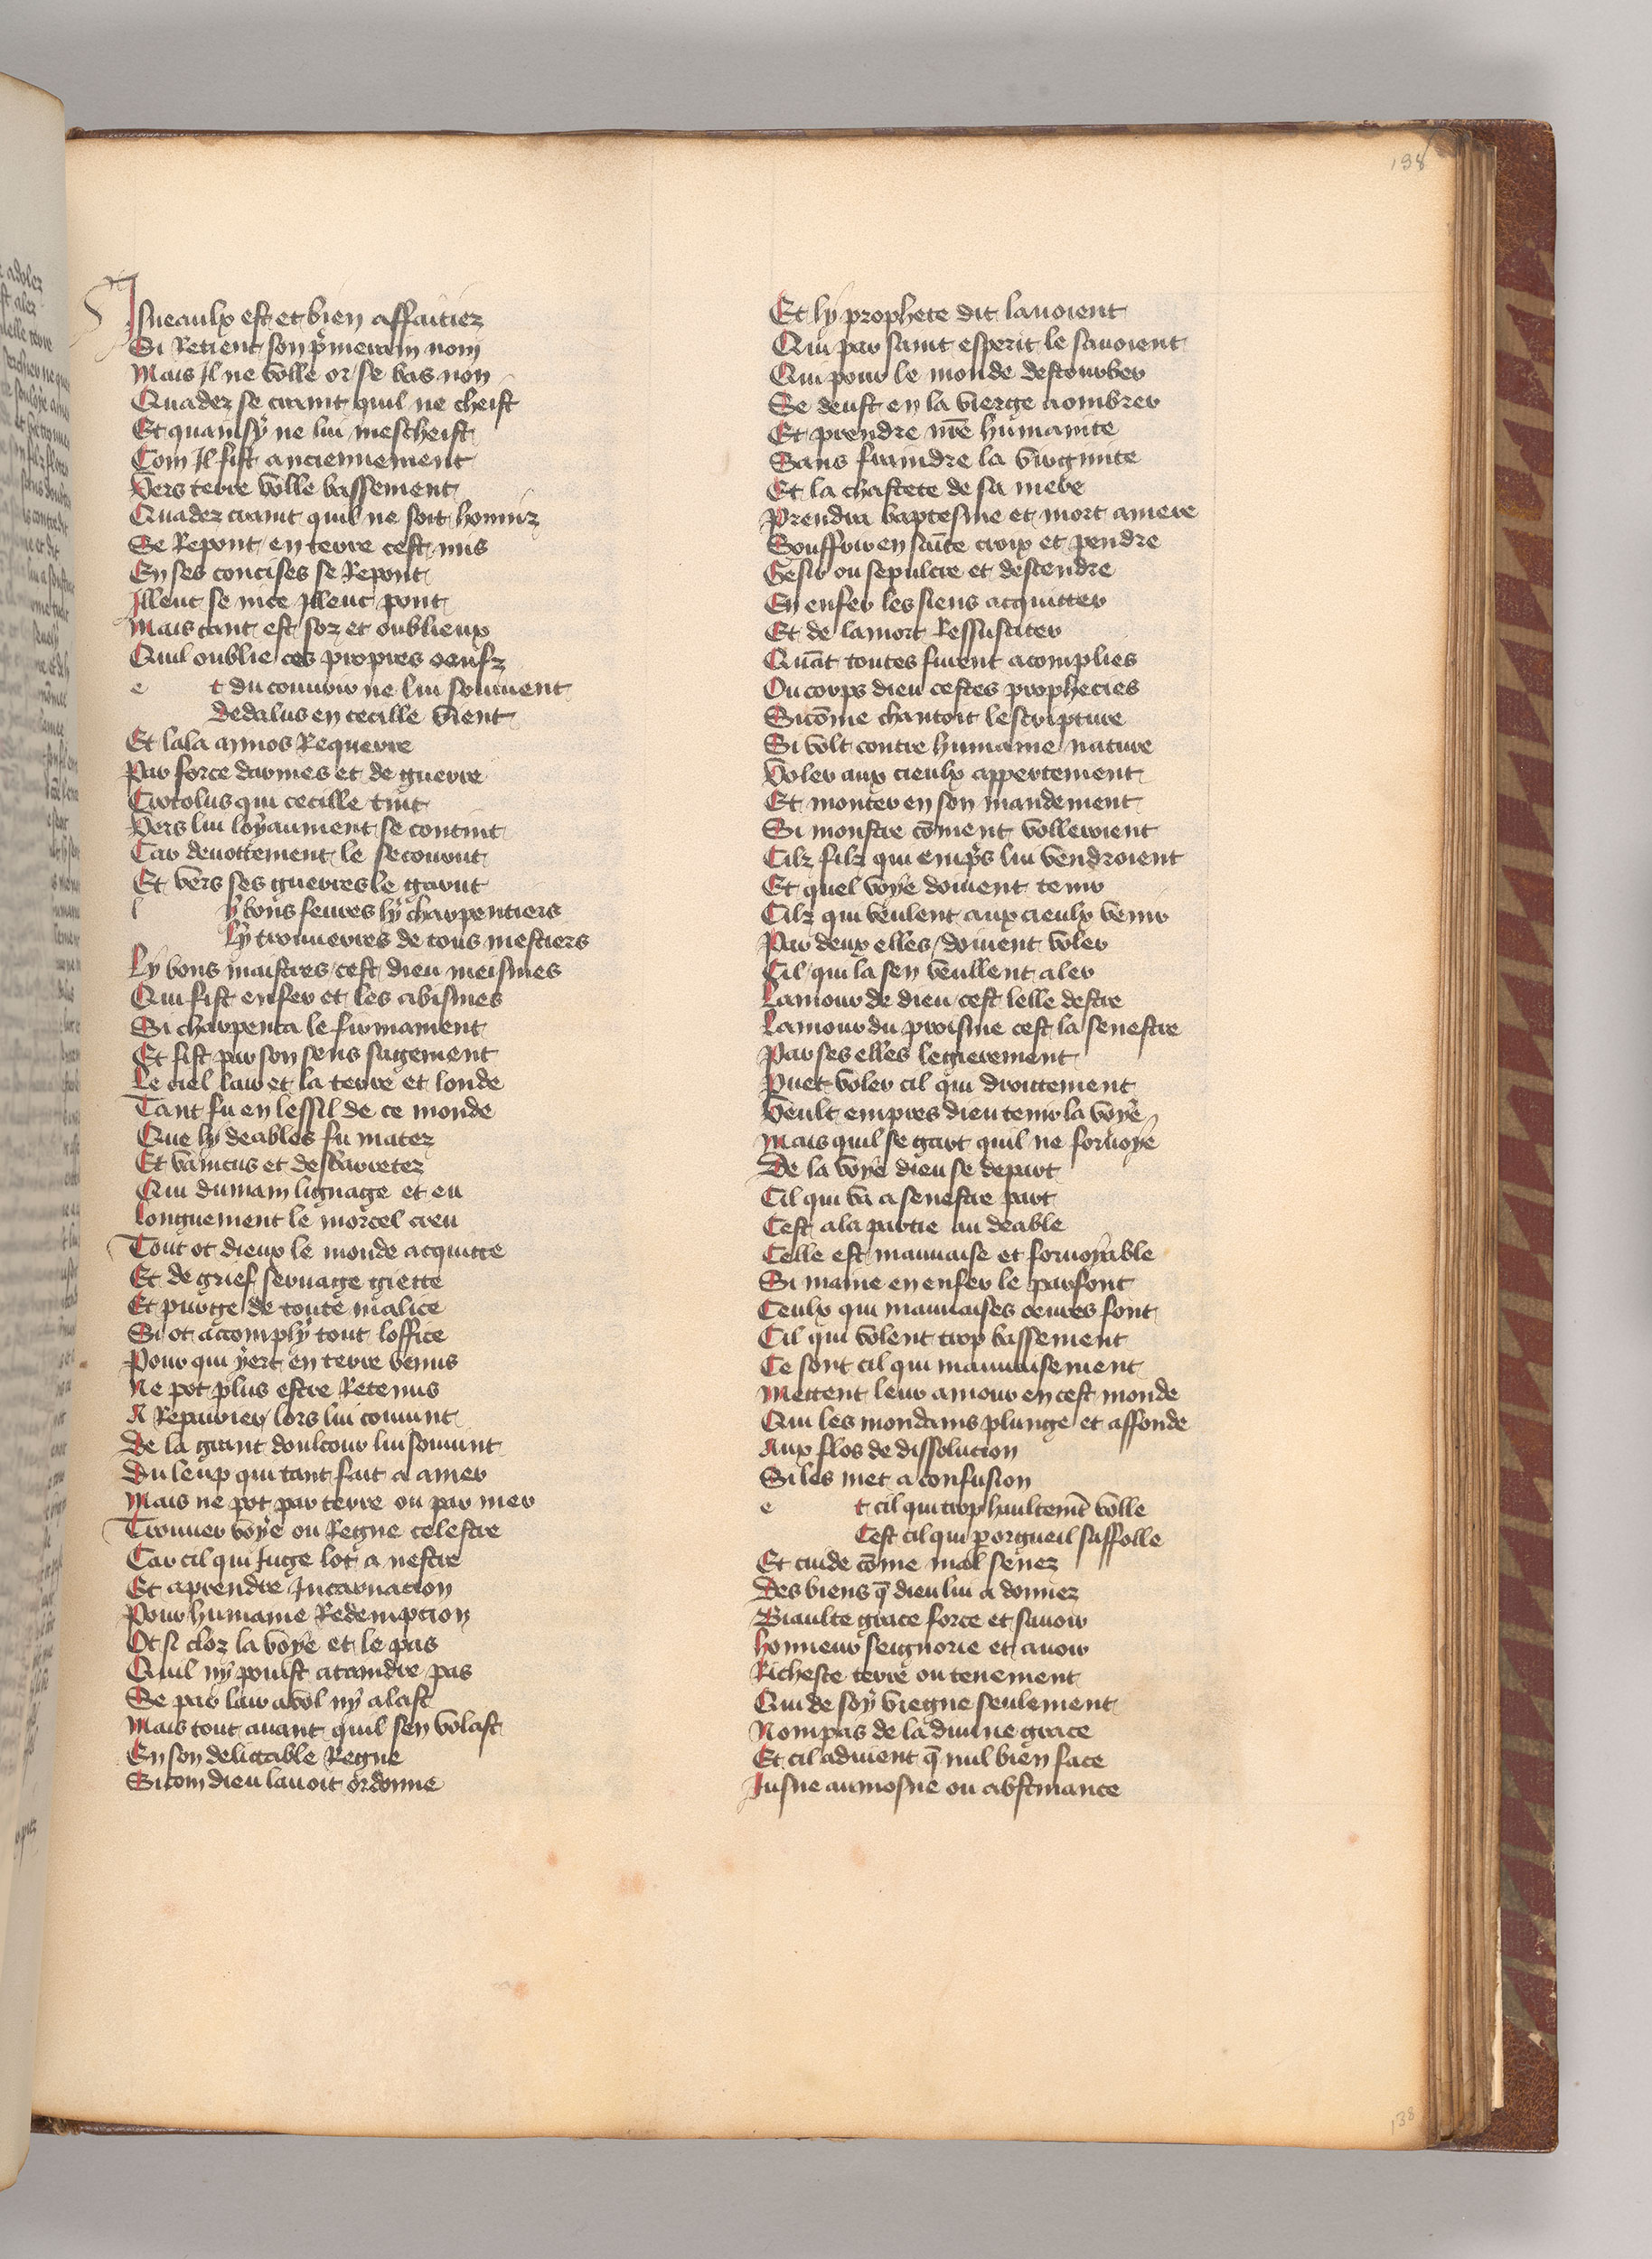 138
Isneaulx est et bien affaitiez
Si Retient son pmerain nom
Mais Il ne volle or se bas non
Quadez se craint quil ne cheist
Et quansy ne lui mescheist
Com Il fist anciennement
Vers terre volle bassement
Quadez craint quil ne soit honniz
Se Repont en terre cest nis
En ses concises se Repont
Illeuc se nice Illeuc pont
Mais tant est soz et oublieux
Quil oublie ces propres oeufz
e t du couvrir ne lui souvient
Dedalus en cecille vient
Et lala annos Requerre
Par force darmes et de guerre
Crocolus qui cecille tint
Vers lui loyaument se contint
Car devottement le secourut
Et vers ses guerres le garut
l y bons fevres ly charpentiers
Ly trouverres de tous mestiers
Ly bons maistres cest dieu meismes
Qui fist enfer et les abismes
Si charpenta le firmament
Et fist par son sens sagement
Le ciel lair et la terre et londe
Tant fu en lessil de ce monde
Que ly deables fu matez
Et vaincus et desbaretez
Qui dumain lignage et eu
Longuement le morcel creu
Tout ot dieux le monde acquitte
Et de grief servage giette
Et purge de toute malice
Si ot accomply tout loffice
Pour qui yert en terre venus
Ne pot plus estre Retenus
A Repairier lors lui couvint
De la grant doulcour lui souvint
Du leup qui tant fait a amer
Mais ne pot par terre ou par mer
Trouver voye ou Regne celestre
Car cil qui Juge lot a nestre
Et aprendre Incarnacion
Pour humaine Redempcion
Ot si cloz la voye et le pas
Quil ny pouist attaindre pas
Se par lair avol ny alast
Mais tout avant quil sen volast
En son delictable Regne
Sicom dieu lavoit ordonne
Et ly prophete dit lavoient
Qui par saint esperit le savoient
Qui pour le monde destourber
Se deust en la vierge aombrer
Et prendre nre humanite
Sans fraindre la virginite
Et la chastete de sa mere
Prendra baptesme et mort amere
Souffrir en saite croix et pendre
Gesir ou sepulcre et descendre
En enfer les siens acquitter
Et de lamort Ressusciter
Quat toutes furent acomplies
Ou corps dieu cestes prophecies
Sicome chantoit lescripture
Si volt contre humaine nature
Voler aux cieulx appertement
Et monter en son mandement
Si monstre coment volleroient
Cilz filz qui empres lui vendroient
Et quel voye doivent tenir
Cilz qui veulent aux cieulx venir
Par deux elles doivent voler
Cil qui la sen veullent aler
Lamour de dieu cest lelle destre
Lamour du proisme cest la senestre
Par ses elles legierement
Puet voler cil qui droittement
Veult empres dieu tenir la voye
Mais quil se gart quil ne forvoye
De la voye dieu se depart
Cil qui va a senestre part
Cest ala partie au deable
Celle est mauvaise et forvoyable
Si maine en enfer le parfont
Ceulx qui mauvaises oeuvres font
Cil qui volent trop bassement
Ce sont cil qui mauvaisement
Mettent leur amour en cest monde
Qui les mondains plunge et affonde
Aux flos de dissolucion
Si les met a confusion
e t cil qui trop haultemt volle
Cest cil qui p orgueil saffolle
Et cuide come mal senez
Des biens q dieu lui a donnez
Biaulte grace force et savoir
Honneur seignorie et avoir
Richesse terre ou tenement
Qui de soy viegne seulement
Nompas de la divine grace
Et cil advient q nul bien face
Jusne aumosne ou abstinance
138